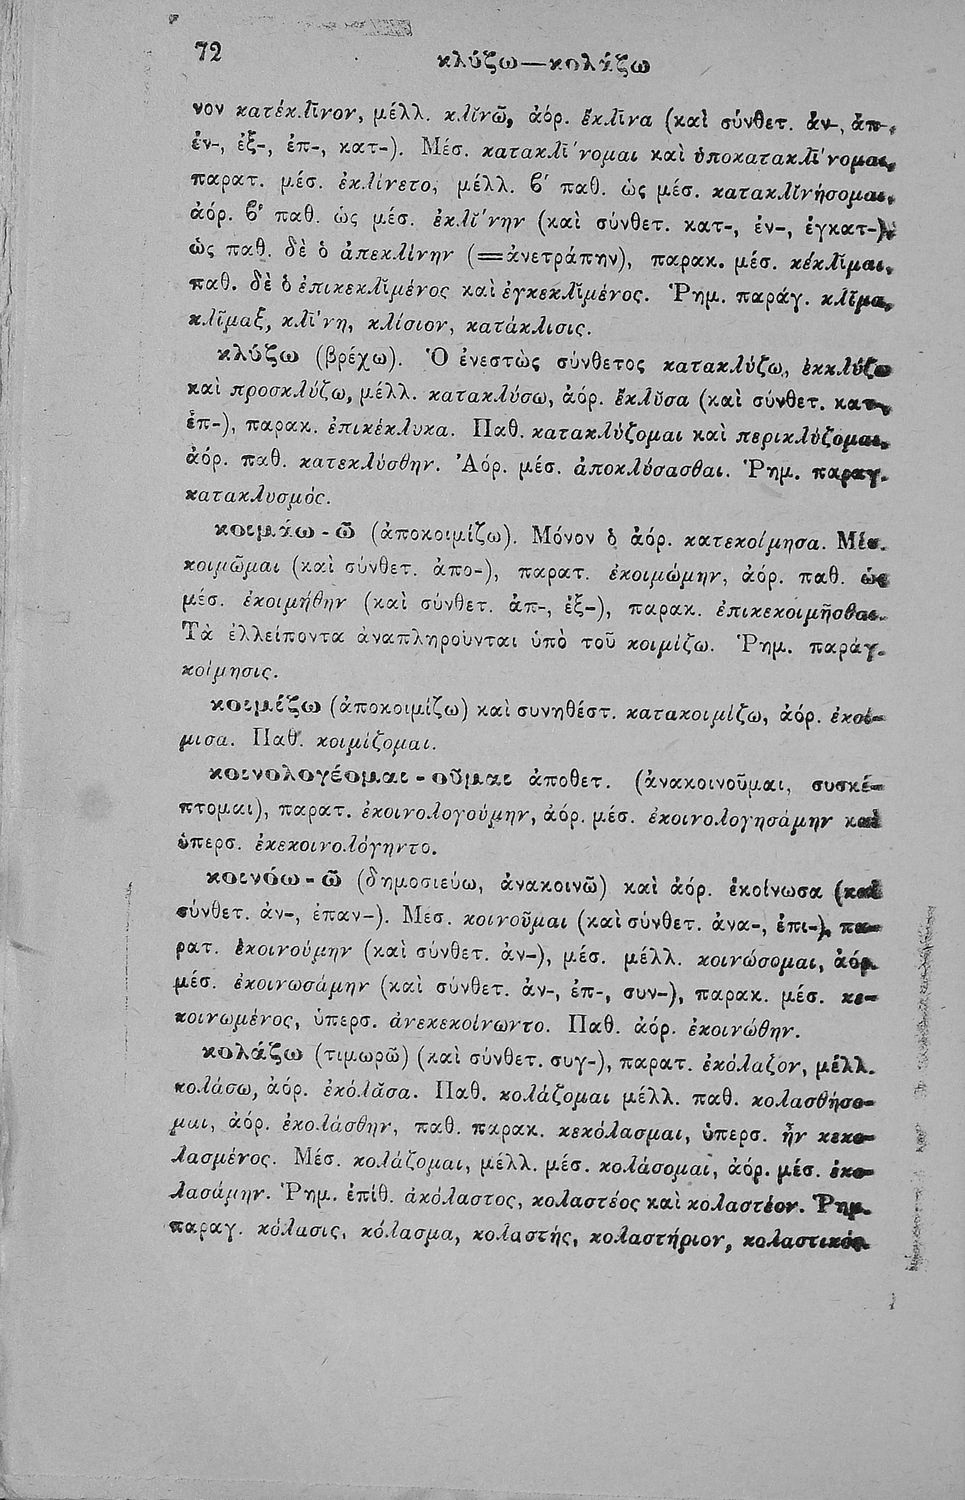 72
κλύζω—κολάζω
νον κατέκλῑνον, μέλλ. κλῐνῶ, ἀόρ. ἔκλῑνα (καὶ σύνθετ. ἀν-, ἀπ-,
ἐν-, ἐξ-, ἐπ-, κατ-). Μέσ. κατακλῑ́νομαι καὶ ὑποκατακλῑ́νομαι,
παρατ. μέσ. ἐκλίνετο, μέλλ. ϐ′ παθ. ὡς μέσ. κατακλῐνήσομαι,
ἀόρ. ϐ′ παθ. ὡς μέσ. ἐκλῐ́νην (καὶ σύνθετ. κατ-, ἐν-, ἐγκατ-),
ὡς παθ. δὲ ὁ ἀπεκλίνην (=ἀνετράπην), παρακ. μέσ. κέκλῐμαι,
παθ. δὲ ὁ ἐπικεκλῐμένος καὶ ἐγκεκλῐμένος. Ῥημ. παράγ. κλῖμα,
κλῖμαξ, κλῑ́νη, κλίσιον, κατάκλισις.
κλύζω (βρέχω). Ὁ ἐνεστὼς σύνθετος κατακλύζω, ἐκκλύζω
καὶ προσκλύζω, μέλλ. κατακλύσω, ἀόρ. ἔκλῠσα (καὶ σύνθετ. κατ-,
ἐπ-), παρακ. ἐπικέκλυκα. Παθ. κατακλύζομαι καὶ περικλύζομαι,
ἀόρ. παθ. κατεκλύσθην. Ἀόρ. μέσ. ἀποκλύσασθαι. Ῥημ. παραγ.
κατακλυσμός.
κοιμάω - ῶ (ἀποκοιμίζω). Μόνον ὁ ἀόρ. κατεκοίμησα. Μέσ.
κοιμῶμαι (καὶ σύνθετ. ἀπο-), παρατ. ἐκοιμώμην, ἀόρ. παθ. ὡς
μέσ. ἐκοιμήθην (καὶ σύνθετ. ἀπ-, ἐξ-), παρακ. ἐπικεκοιμῆσθαι.
Τὰ ἐλλείποντα ἀναπληροῦνται ὑπὸ τοῦ κοιμίζω. Ῥημ. παράγ.
κοίμησις.
κοιμίζω (ἀποκοιμίζω) καὶ συνηθέστ. κατακοιμίζω, ἀόρ. ἐκοί-
μισα. Παθ. κοιμίζομαι.
κοινολογέομαι - οῦμαι ἀποθετ. (ἀνακοινοῦμαι, συσκέ-
πτομαι), παρατ. ἐκοινολογούμην, ἀόρ. μέσ. ἐκοινολογησάμην καὶ
ὑπερσ. ἐκεκοινολόγηντο.
κοινόω - ῶ (δημοσιεύω, ἀνακοινῶ) καὶ ἀόρ. ἐκοίνωσα (καὶ
σύνθετ. ἀν-, ἐπαν-). Μεσ. κοινοῦμαι (καὶ σύνθετ. ἀνα-, ἐπι-), πα-
ρατ. ἐκοινούμην (καὶ σύνθετ. ἀν-), μέσ. μέλλ. κοινώσομαι, ἀόρ.
μέσ. ἐκοινωσάμην (καὶ σύνθετ. ἀν-, ἐπ-, συν-), παρακ. μέσ. κε-
κοινωμένος, ὑπερσ. ἀνεκεκοίνωντο. Παθ. ἀόρ. ἐκοινώθην.
κολάζω (τιμωρῶ) (καὶ σύνθετ. συγ-), παρατ. ἐκόλαζον, μέλλ.
κολάσω, ἀόρ. ἐκόλᾰσα. Παθ. κολάζομαι μέλλ. παθ. κολασθήσο-
μαι, ἀόρ. ἐκολάσθην, παθ. παρακ. κεκόλασμαι, ὑπερσ. ἦν κεκο-
λασμένος. Μέσ. κολάζομαι, μέλλ. μέσ. κολάσομαι, ἀόρ. μέσ. ἐκο-
λασάμην. Ῥημ. ἐπίθ. ἀκόλαστος, κολαστέος καὶ κολαστέον. Ῥημ.
παραγ. κόλασις, κόλασμα, κολαστής, κολαστήριον, κολαστικός.